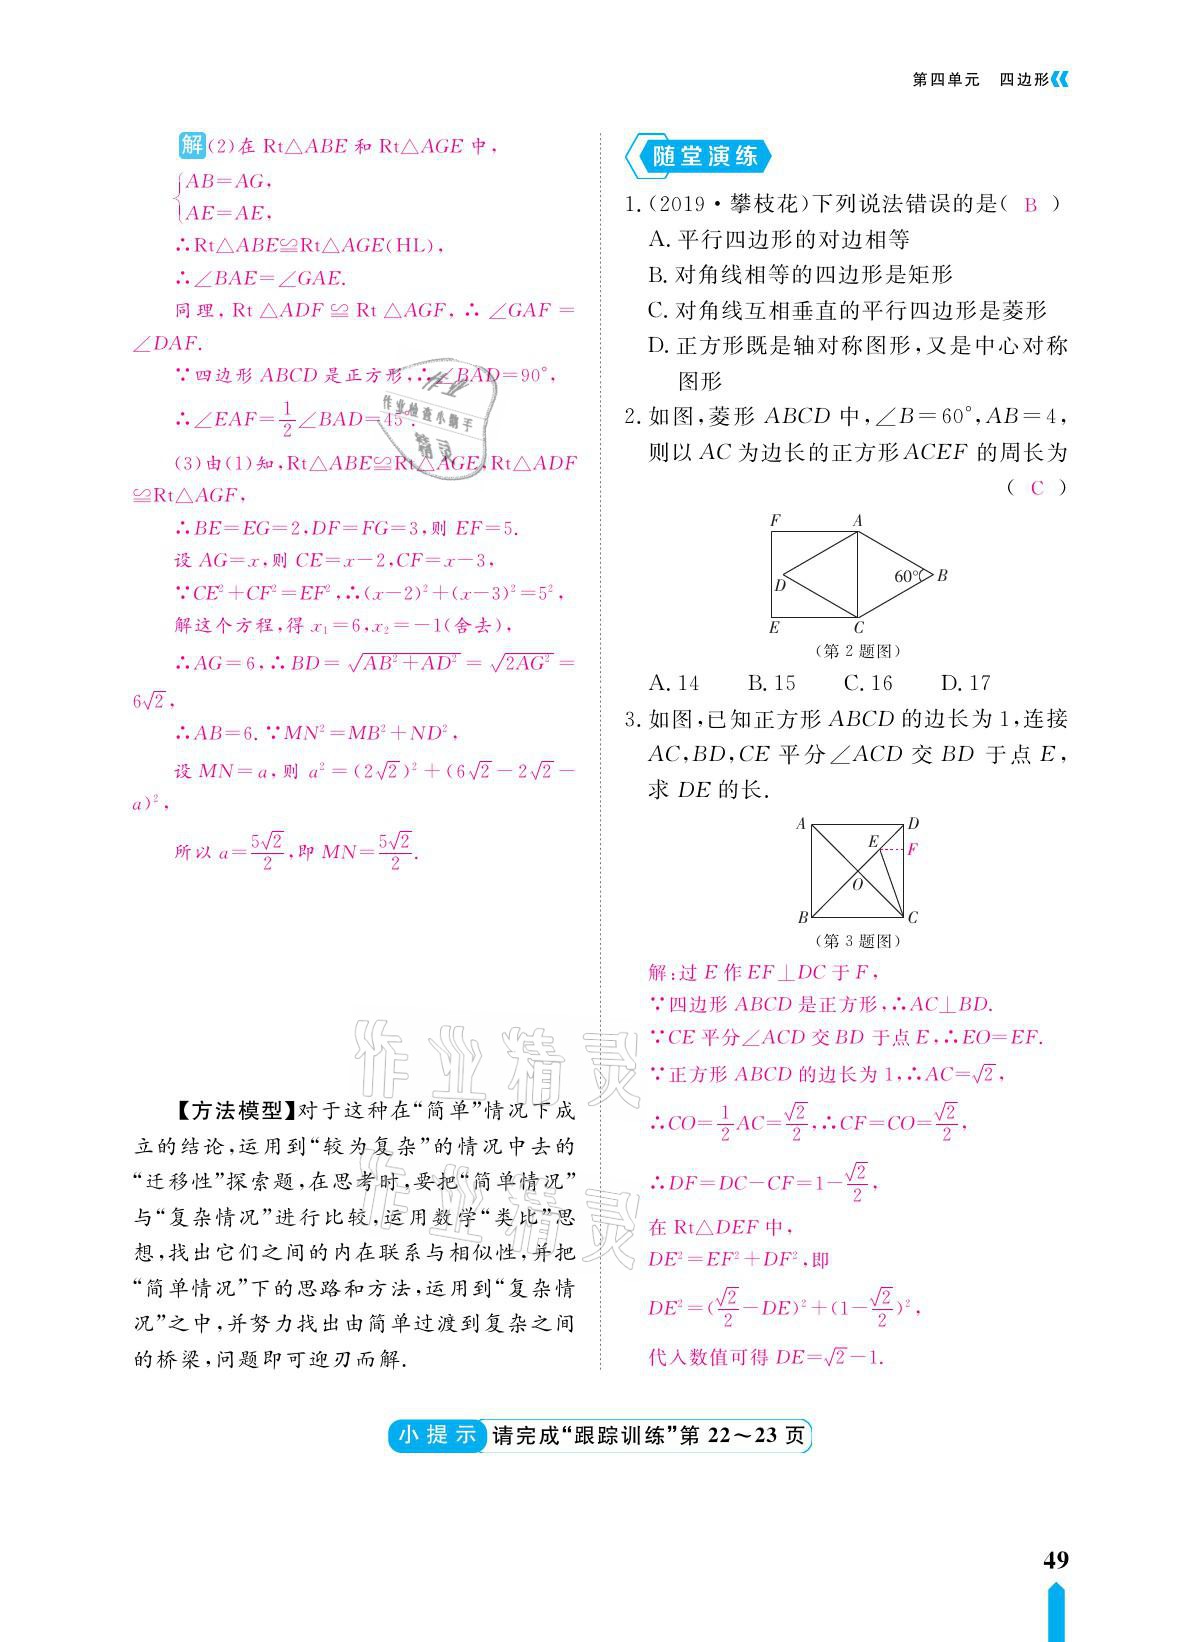 第四单元 四边形
解(2)在 Rt△ABE 和 Rt△AGE 中,
AB=AG,
AE=AE,
∴Rt△ABE≌Rt△AGE(HL),
∴∠BAE=∠GAE.
同理, Rt △ADF ≌ Rt △AGF, ∴ ∠GAF =
∠DAF.
∵四边形 ABCD 是正方形,∴∠BAD=90°,
∴∠EAF=1/2∠BAD=45°.
(3)由(1)知,Rt△ABE≌Rt△AGE,Rt△ADF
≌Rt△AGF,
∴BE=EG=2,DF=FG=3,则 EF=5.
设 AG=x,则 CE=x-2,CF=x-3,
∵CE²+CF²=EF²,∴(x-2)²+(x-3)²=5²,
解这个方程,得 x₁=6,x₂=-1(舍去),
∴AG=6,∴BD=√(AB²+AD²)=√(2AG²)=
6√2,
∴AB=6.∵MN²=MB²+ND²,
设 MN=a,则 a²=(2√2)²+(6√2-2√2-
a)²,
所以 a=5√2/2,即 MN=5√2/2.
【方法模型】对于这种在“简单”情况下成
立的结论,运用到“较为复杂”的情况中去的
“迁移性”探索题,在思考时,要把“简单情况”
与“复杂情况”进行比较,运用数学“类比”思
想,找出它们之间的内在联系与相似性,并把
“简单情况”下的思路和方法,运用到“复杂情
况”之中,并努力找出由简单过渡到复杂之间
的桥梁,问题即可迎刃而解.
随堂演练
1.(2019·攀枝花)下列说法错误的是( B )
A. 平行四边形的对边相等
B. 对角线相等的四边形是矩形
C. 对角线互相垂直的平行四边形是菱形
D. 正方形既是轴对称图形,又是中心对称
图形
2. 如图,菱形 ABCD 中,∠B=60°,AB=4,
则以 AC 为边长的正方形 ACEF 的周长为
( C )
F A
60° B
D
E C
(第 2 题图)
A. 14 B. 15 C. 16 D. 17
3. 如图,已知正方形 ABCD 的边长为 1,连接
AC,BD,CE 平分∠ACD 交 BD 于点 E,
求 DE 的长.
A D
E F
O
B C
(第 3 题图)
解:过 E 作 EF⊥DC 于 F,
∵四边形 ABCD 是正方形,∴AC⊥BD.
∵CE 平分∠ACD 交 BD 于点 E,∴EO=EF.
∵正方形 ABCD 的边长为 1,∴AC=√2,
∴CO=1/2AC=√2/2,∴CF=CO=√2/2,
∴DF=DC-CF=1-√2/2,
在 Rt△DEF 中,
DE²=EF²+DF²,即
DE²=(√2/2-DE)²+(1-√2/2)²,
代入数值可得 DE=√2-1.
作业
作业检查小助手
精灵
作业精灵
作业精灵
小提示 请完成“跟踪训练”第 22～23 页
49